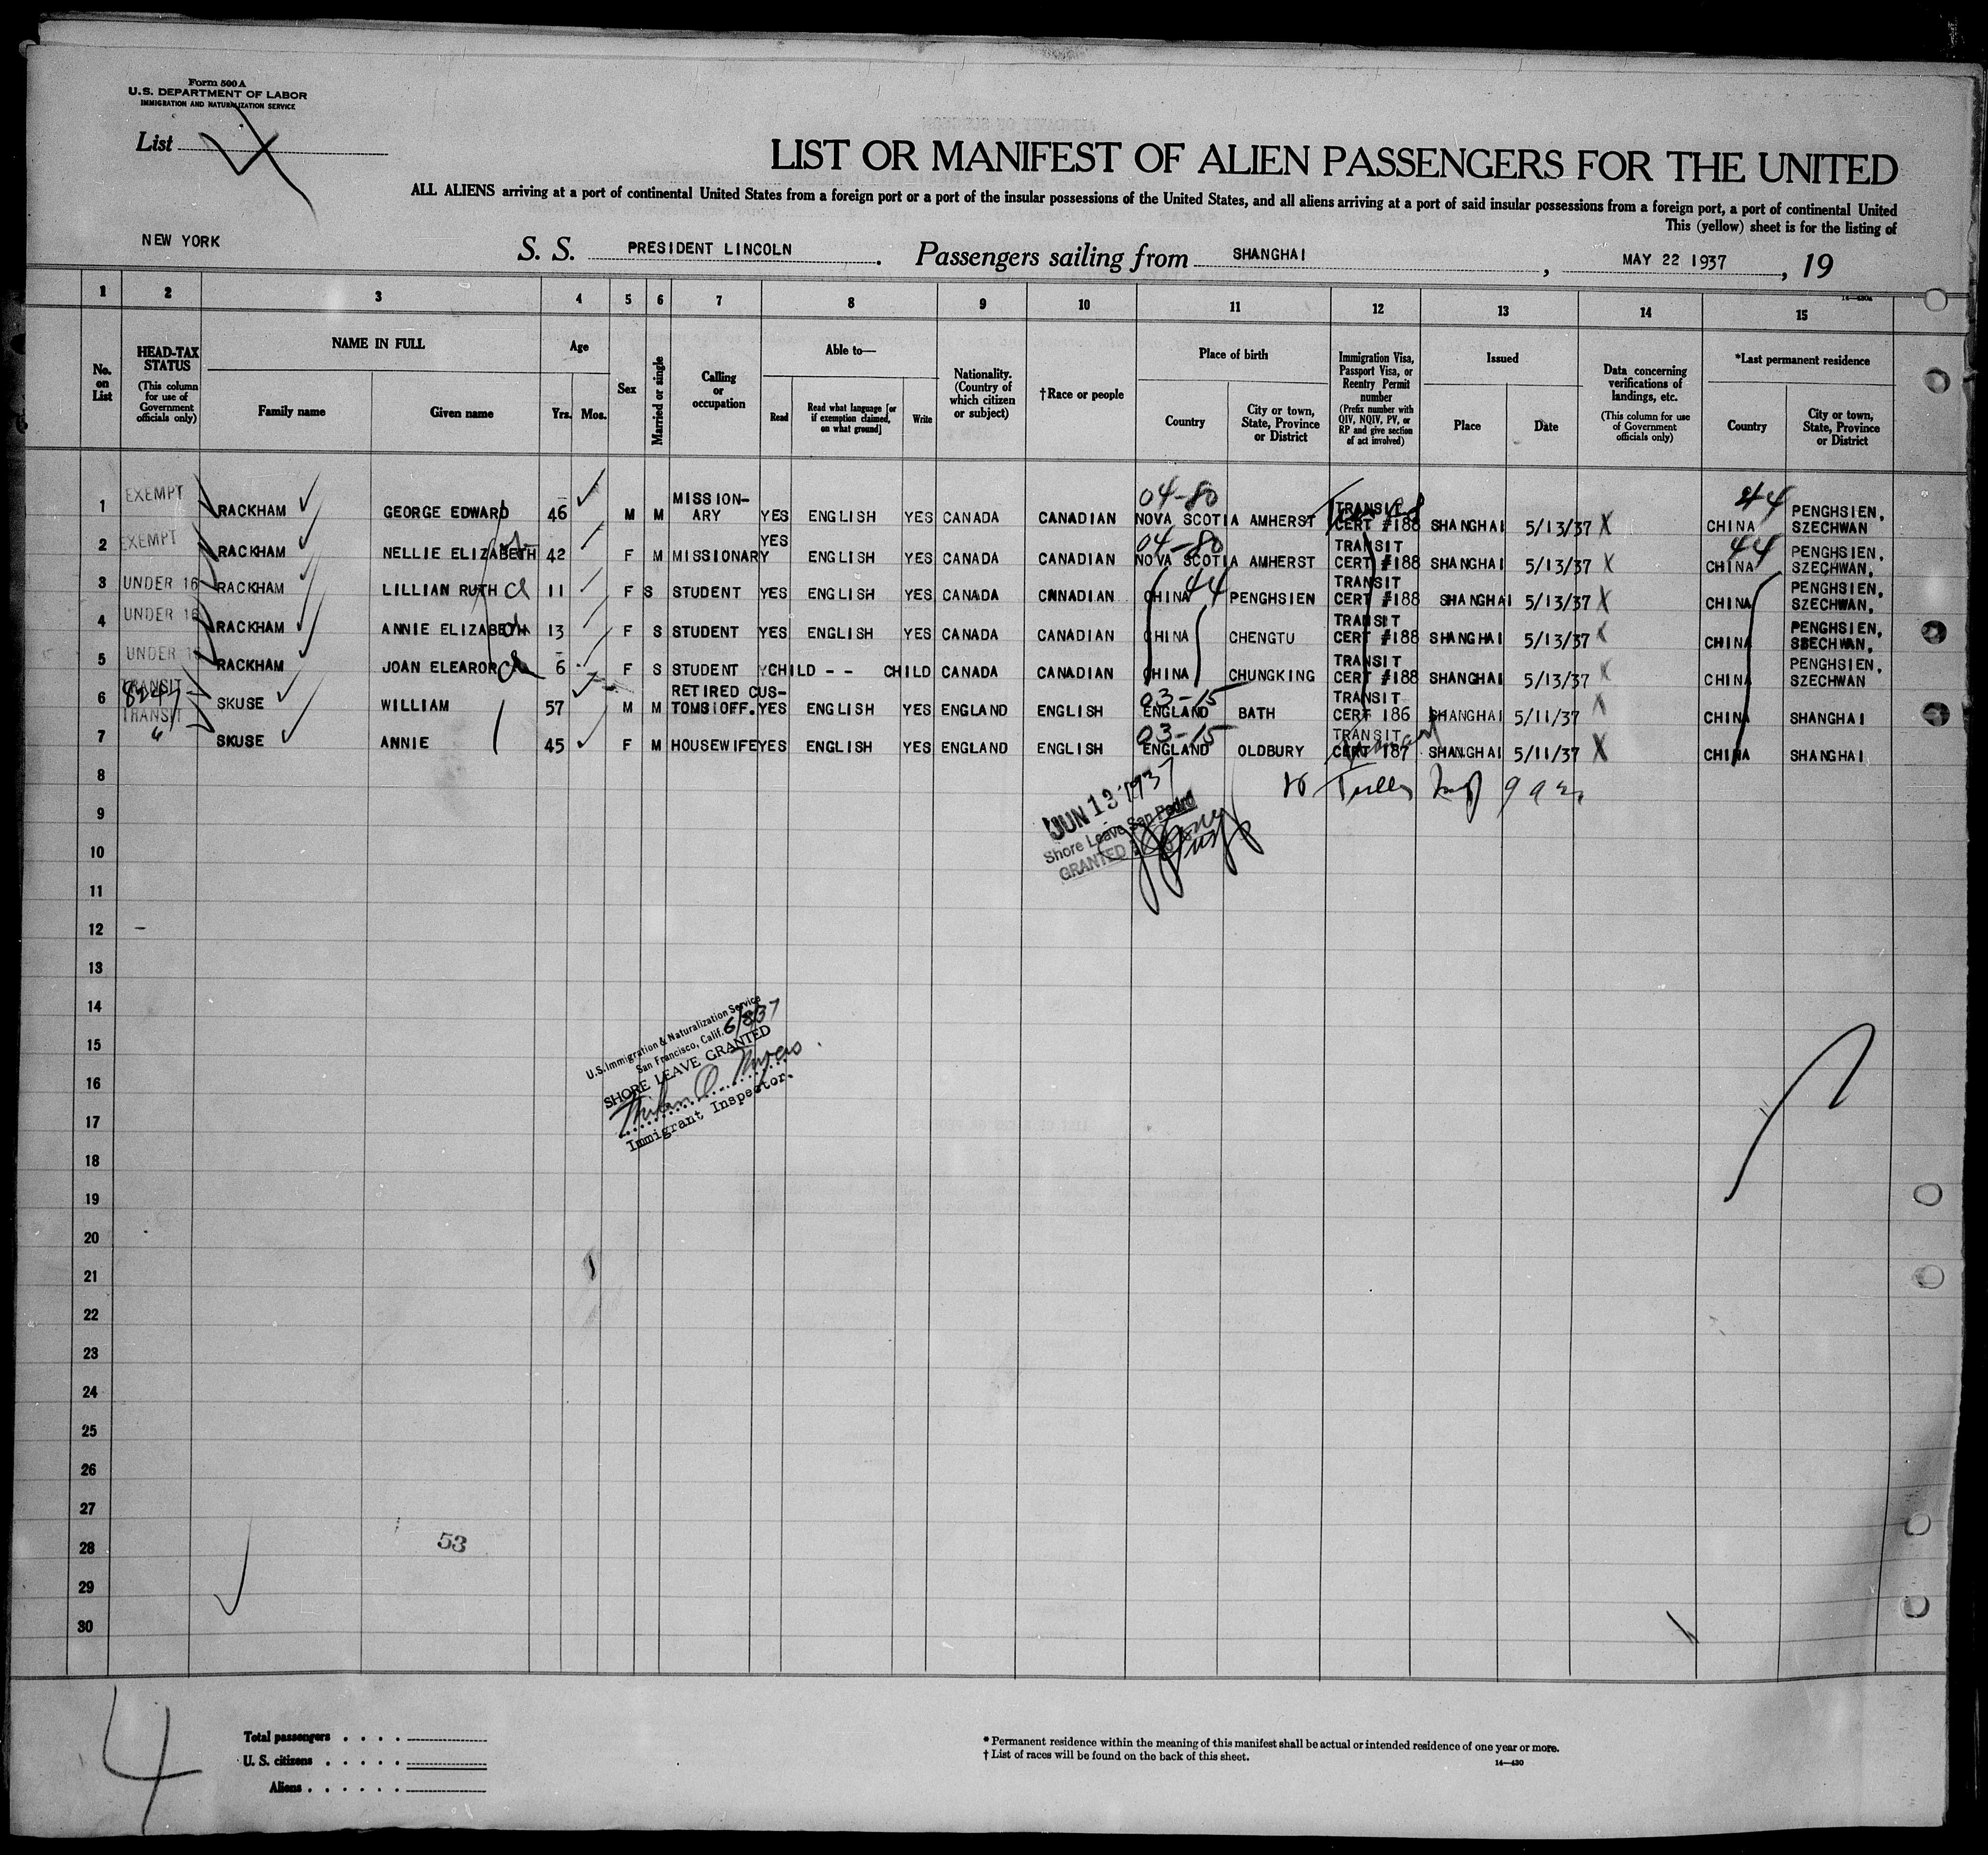 Form 500 A
U.S. DEPARTMENT OF LABOR
IMMIGRATION AND NATURALIZATION SERVICE
List
LIST OR MANIFEST OF ALIEN PASSENGERS FOR THE UNITED
ALL ALIENS arriving at a port of continental United States from a foreign port or a port of the insular possessions of the United States, and all aliens arriving at a port of said insular possessions from a foreign port, a port of continental United
This (yellow) sheet is for the listing of
NEW YORK S. S. PRESIDENT LINCOLN . Passengers sailing from SHANGHAI , MAY 22 1937 , 19
14—430a
1 2 3 4 5 6 7 8 9 10 11 12 13 14 15
No. on List
HEAD-TAX STATUS (This column for use of Government officials only)
NAME IN FULL
Family name Given name
Age
Yrs. Mos.
Sex
Married or single
Calling or occupation
Able to—
Read
Read what language [or if exemption claimed, on what ground]
Write
Nationality. (Country of which citizen or subject)
†Race or people
Place of birth
Country
City or town, State, Province or District
Immigration Visa, Passport Visa, or Reentry Permit number (Prefix number with QIV, NQIV, PV, or RP and give section of act involved)
Issued
Place Date
Data concerning verifications of landings, etc. (This column for use of Government officials only)
*Last permanent residence
Country
City or town, State, Province or District
04-80 44
1 EXEMPT RACKHAM GEORGE EDWARD 46 M M MISSION-ARY YES ENGLISH YES CANADA CANADIAN NOVA SCOTIA AMHERST TRANSIT CERT #188 SHANGHAI 5/13/37 X CHINA PENGHSIEN, SZECHWAN
04-80 44
2 EXEMPT RACKHAM NELLIE ELIZABETH 42 F M MISSIONARY YES ENGLISH YES CANADA CANADIAN NOVA SCOTIA AMHERST TRANSIT CERT #188 SHANGHAI 5/13/37 X CHINA PENGHSIEN, SZECHWAN,
3 UNDER 16 RACKHAM LILLIAN RUTH 11 F S STUDENT YES ENGLISH YES CANADA CNNADIAN CHINA 44 PENGHSIEN TRANSIT CERT #188 SHANGHAI 5/13/37 X CHINA PENGHSIEN, SZECHWAN,
4 UNDER 16 RACKHAM ANNIE ELIZABETH 13 F S STUDENT YES ENGLISH YES CANADA CANADIAN CHINA CHENGTU TRANSIT CERT #188 SHANGHAI 5/13/37 X CHINA PENGHSIEN, SZECHWAN,
5 UNDER 1 RACKHAM JOAN ELEAROR 6 F S STUDENT YCHILD - - CHILD CANADA CANADIAN CHINA CHUNGKING TRANSIT CERT #188 SHANGHAI 5/13/37 X CHINA PENGHSIEN, SZECHWAN
03-15
6 TRANSIT SKUSE WILLIAM 57 M M RETIRED CUS-TOMS OFF. YES ENGLISH YES ENGLAND ENGLISH ENGLAND BATH TRANSIT CERT 186 SHANGHAI 5/11/37 X CHINA SHANGHAI
03-15
7 TRANSIT " SKUSE ANNIE 45 F M HOUSEWIFE YES ENGLISH YES ENGLAND ENGLISH ENGLAND OLDBURY TRANSIT CERT 187 SHANGHAI 5/11/37 X CHINA SHANGHAI
8
JUN 13 1937
9
Shore Leave San Pedro
10
GRANTED
11
12
13
14
U.S. Immigration & Naturalization Service
San Francisco, Calif. 6/8/37
15
SHORE LEAVE GRANTED
16
Immigrant Inspector.
17
18
19
20
21
22
23
24
25
26
27
28 53
29
30
4
Total passengers
U. S. citizens
Aliens
* Permanent residence within the meaning of this manifest shall be actual or intended residence of one year or more.
† List of races will be found on the back of this sheet.
14—430